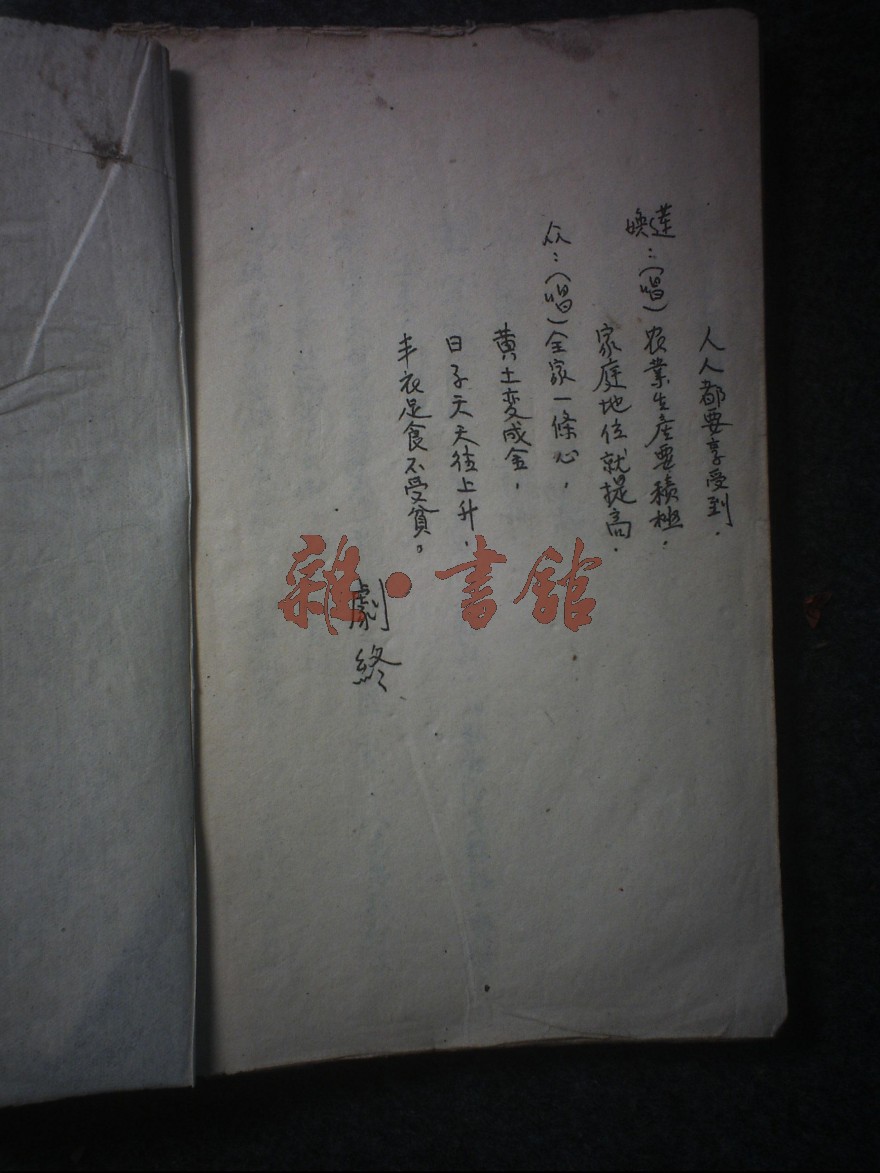 人人都要享受到.
蓮
煥：(唱)农業生產要積極.
家庭地位就提高.
众：(唱)全家一條心，
黄土变成金，
日子天天往上升，
丰衣足食不受貧。
劇終
雜·書舘